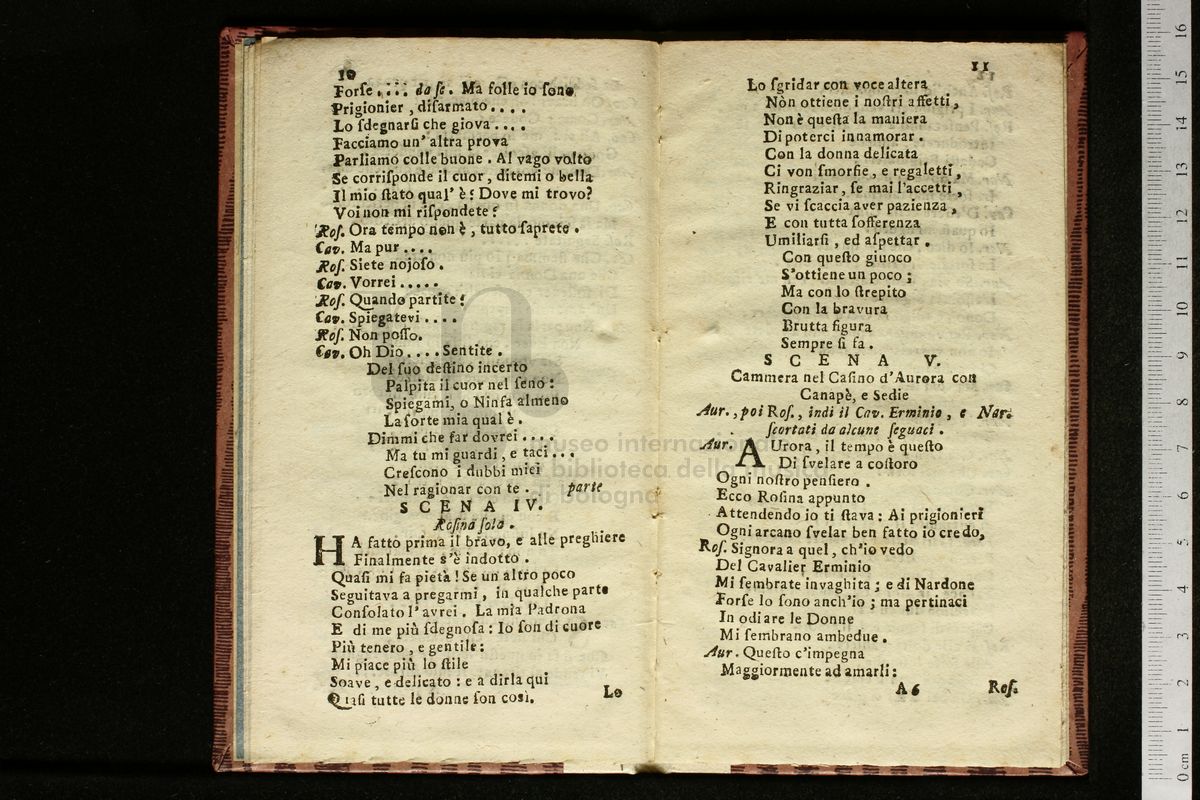 10
Forſe . . . . da ſe. Ma folle io ſono
Prigionier, diſarmato . . . .
Lo ſdegnarſi che giova . . . .
Facciamo un' altra prova
Parliamo colle buone. Al vago volto
Se corriſponde il cuor, ditemi o bella
Il mio ſtato qual' è? Dove mi trovo?
Voi non mi riſpondete?
Roſ. Ora tempo non è, tutto ſaprete.
Cav. Ma pur . . . .
Roſ. Siete nojoſo.
Cav. Vorrei . . . . .
Roſ. Quando partite?
Cav. Spiegatevi . . . .
Roſ. Non poſſo.
Cav. Oh Dio . . . . Sentite.
Del ſuo deſtino incerto
Palpita il cuor nel ſeno:
Spiegami, o Ninfa almeno
La ſorte mia qual è.
Dimmi che far dovrei . . . .
Ma tu mi guardi, e taci . . .
Creſcono i dubbi miei
Nel ragionar con te. parte
SCENA IV.
Roſina ſola.
HA fatto prima il bravo, e alle preghiere
Finalmente s'è indotto.
Quaſi mi fa pietà! Se un altro poco
Seguitava a pregarmi, in qualche parte
Conſolato l'avrei. La mia Padrona
E di me più ſdegnoſa: Io ſon di cuore
Più tenero, e gentile:
Mi piace più lo ſtile
Soave, e delicato: e a dirla qui
Quaſi tutte le donne ſon così.
Lo
11
Lo ſgridar con voce altera
Nòn ottiene i noſtri affetti,
Non è queſta la maniera
Di poterci innamorar.
Con la donna delicata
Ci von ſmorfie, e regaletti,
Ringraziar, ſe mai l'accetti,
Se vi ſcaccia aver pazienza,
E con tutta ſofferenza
Umiliarſi, ed aſpettar.
Con queſto giuoco
S'ottiene un poco;
Ma con lo ſtrepito
Con la bravura
Brutta figura
Sempre ſi fa.
SCENA V.
Cammera nel Caſino d'Aurora con
Canapè, e Sedie
Aur., poi Roſ., indi il Cav. Erminio, e Nar.
ſcortati da alcune ſeguaci.
Aur. AUrora, il tempo è queſto
Di ſvelare a coſtoro
Ogni noſtro penſiero.
Ecco Roſina appunto
Attendendo io ti ſtava: Ai prigionieri
Ogni arcano ſvelar ben fatto io credo,
Roſ. Signora a quel, ch'io vedo
Del Cavalier Erminio
Mi ſembrate invaghita; e di Nardone
Forſe lo ſono anch'io; ma pertinaci
In odiare le Donne
Mi ſembrano ambedue.
Aur. Queſto c'impegna
Maggiormente ad amarli:
A 6 Roſ.
museo internazionale
e biblioteca della musica
di bologna
0 cm 1 2 3 4 5 6 7 8 9 10 11 12 13 14 15 16